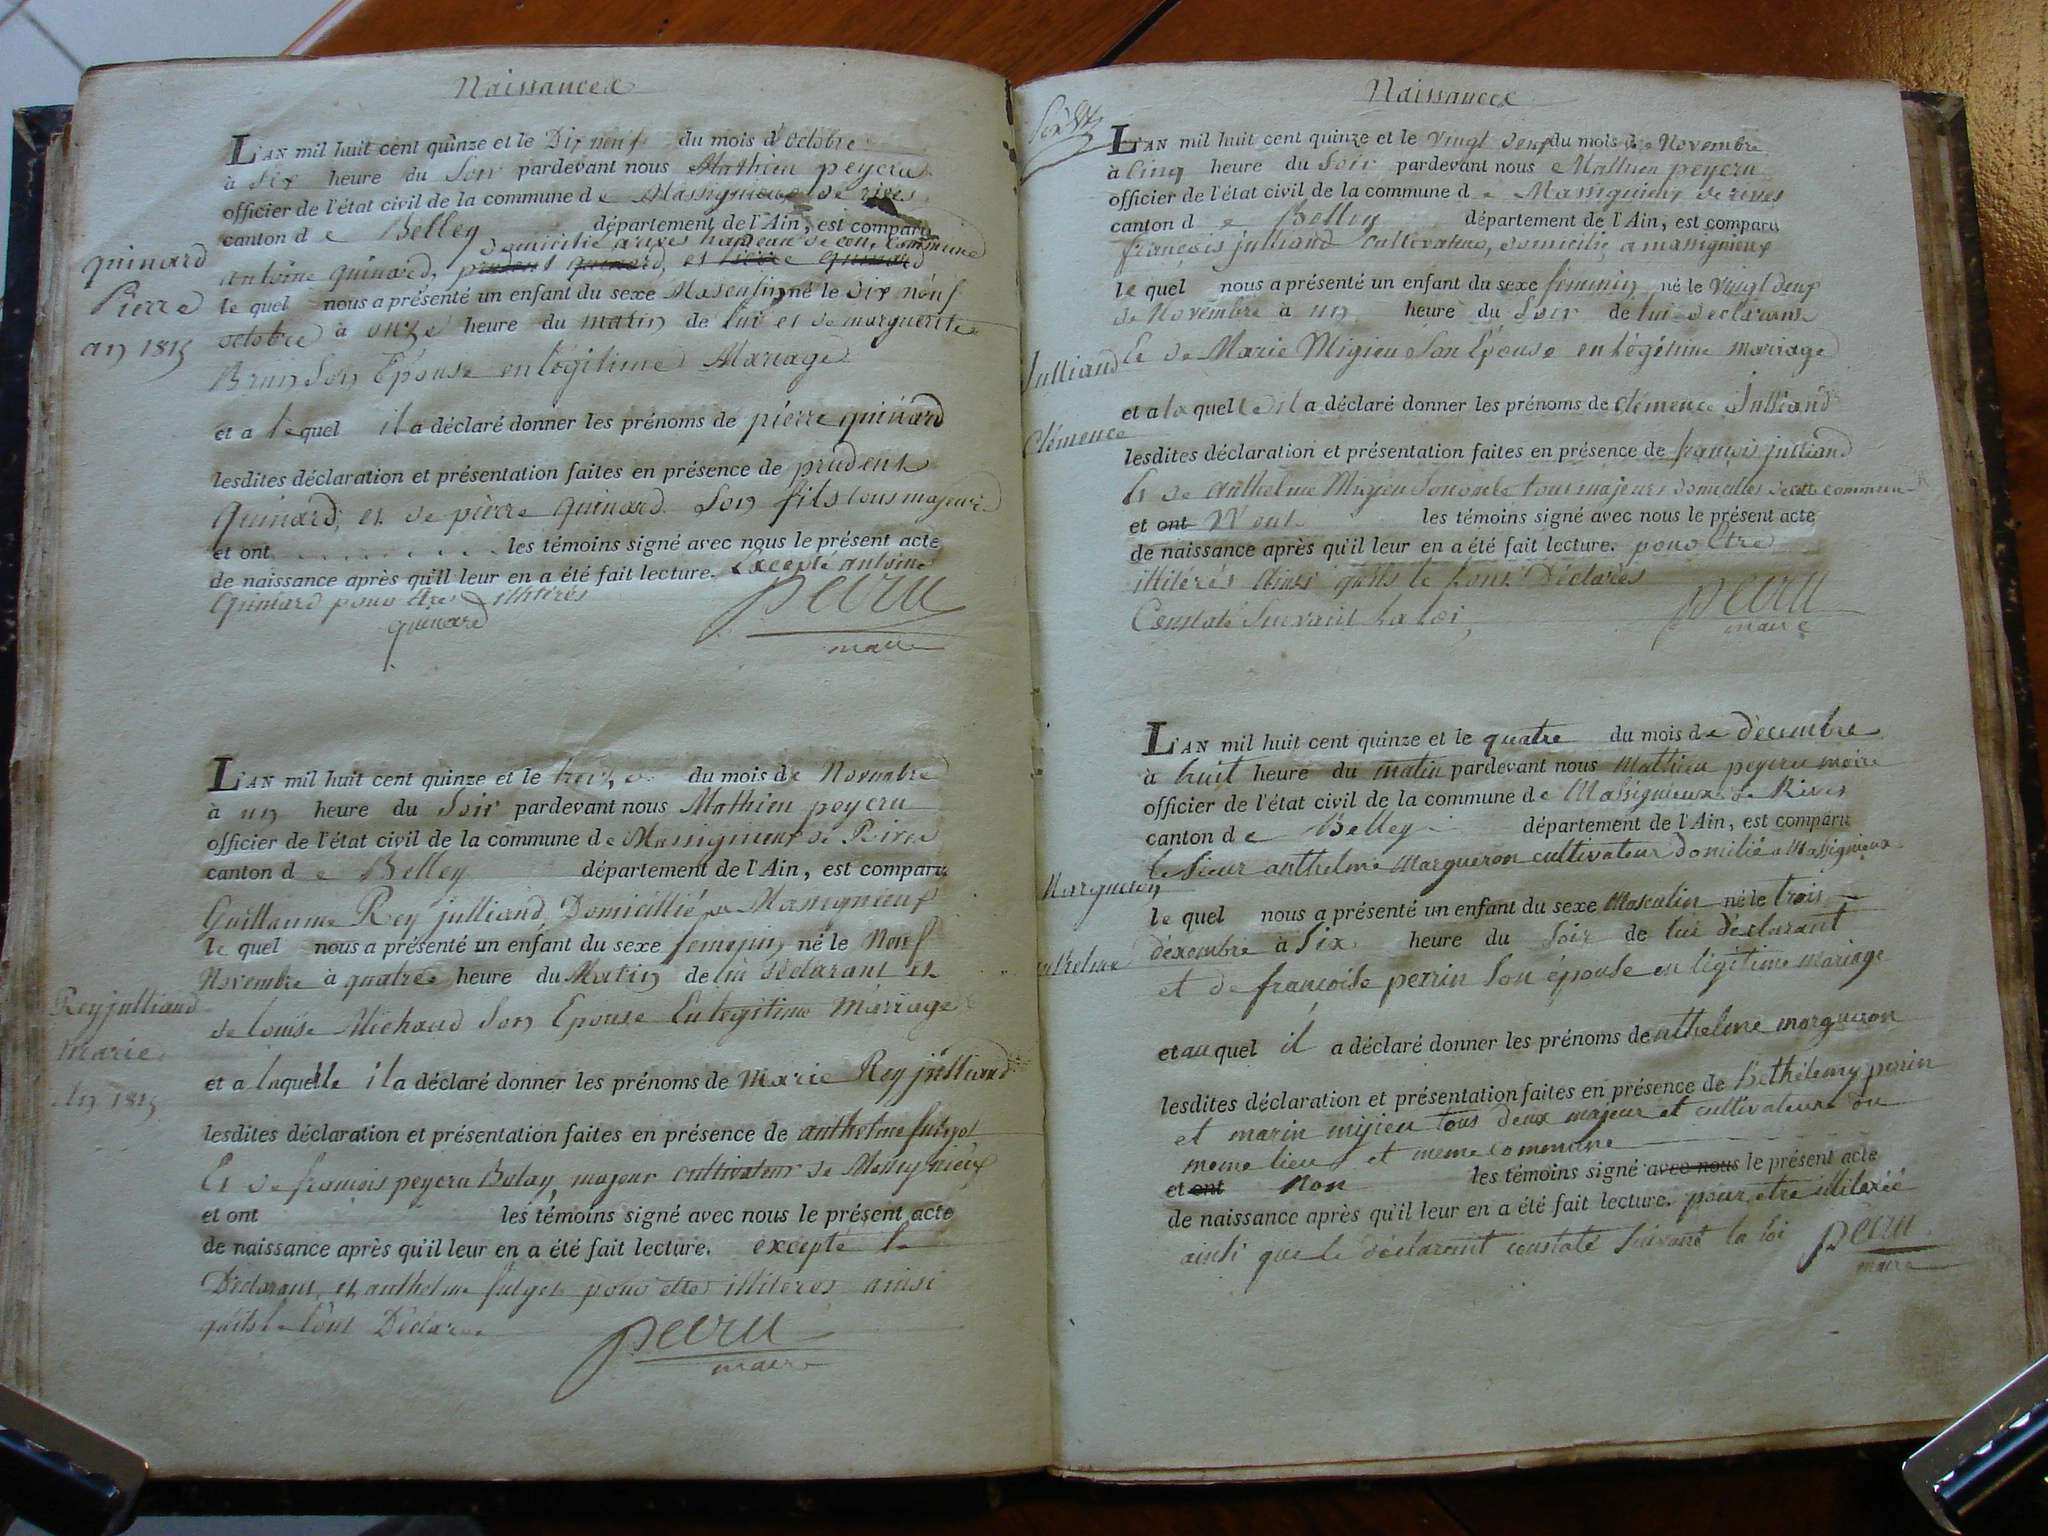 Naissances
L'AN mil huit cent quinze et le Dix neuf du mois d'octobre
à Six heure du Soir pardevant nous Mathieu peycru
officier de l'état civil de la commune de Massignieux de rives
canton de Belley département de l'Ain, est comparu
domicilié hameau de cette commune
antoine quinard, prudent quinard, et pierre quinard
quinard
Pierre
an 1815
le quel nous a présenté un enfant du sexe Masculin né le dix neuf
octobre à onze heure du matin de lui et de marguerite
Brun Son Epouse en legitime Mariage
et a lequel il a déclaré donner les prénoms de pierre quinard
lesdites déclaration et présentation faites en présence de prudent
quinard, et de pierre quinard Son fils tous majeurs
et ont . . . . . . . . les témoins signé avec nous le présent acte
de naissance après qu'il leur en a été fait lecture. Excepté antoine
quinard pour être illitérés
quinard
peicru
maire
L'AN mil huit cent quinze et le treize du mois de Novembre
à un heure du Soir pardevant nous Mathieu peycru
officier de l'état civil de la commune de Massignieux de Rives
canton de Belley département de l'Ain, est comparu
Guillaume Rey julliand Domicillié a Massignieux
le quel nous a présenté un enfant du sexe femenin né le Neuf
Novembre à quatre heure du Matin de lui déclarant et
Rey julliand
Marie
An 1815
de Louise Michaud Son Epouse En legitime Mariage
et a laquelle il a déclaré donner les prénoms de Marie Rey julliand
lesdites déclaration et présentation faites en présence de anthelme fulget
Et de françois peycru Bolay majeur cultivateur de Massignieux
et ont les témoins signé avec nous le présent acte
de naissance après qu'il leur en a été fait lecture. excepté le
Déclarant et anthelme fulget pour etre illitérés ainsi
qu'ils l'ont Déclaré
peicru
maire
Naissances
L'AN mil huit cent quinze et le vingt deux du mois de Novembre
à cinq heure du Soir pardevant nous Mathieu peycru
officier de l'état civil de la commune de Massignieux de rives
canton de Belley département de l'Ain, est comparu
françois julliand cultivateur, domicilié a massignieux
le quel nous a présenté un enfant du sexe feminin né le vingt deux
de Novembre à un heure du Soir de lui déclarant
Julliand
Clémence
Et de Marie Migieu Son Epouse en légitime mariage
et a la quelle il a déclaré donner les prénoms de clémence Julliand
lesdites déclaration et présentation faites en présence de françois julliand
Et de anthelme Migieu Son oncle tous majeurs domicilies de cette commune
et ont N'ont les témoins signé avec nous le présent acte
de naissance après qu'il leur en a été fait lecture. pour être
illitérés ainsi qu'ils le sont Déclarés
Constaté Suivant la loi,
peicru
maire
L'AN mil huit cent quinze et le quatre du mois de décembre
à huit heure du matin pardevant nous Mathieu peycru maire
officier de l'état civil de la commune de Massignieux de Rives
canton de Belley département de l'Ain, est comparu
le Sieur anthelme Margueron cultivateur domilié a Massignieux
Margueron
anthelme
le quel nous a présenté un enfant du sexe Masculin né le trois
déxembre à Six heure du Soir de lui déclarant
et de françoise perrin Son épouse en légitime mariage
et au quel il a déclaré donner les prénoms de anthelme margueron
lesdites déclaration et présentation faites en présence de bethélemy perrin
et marin mijieu tous deux majeur et cultivateurs du
meme lieu et meme commune
et ont non les témoins signé avec nous le présent acte
de naissance après qu'il leur en a été fait lecture. pour etre illitéréé
ainsi que le déclarant constaté Suivant la loi
peicru
maire